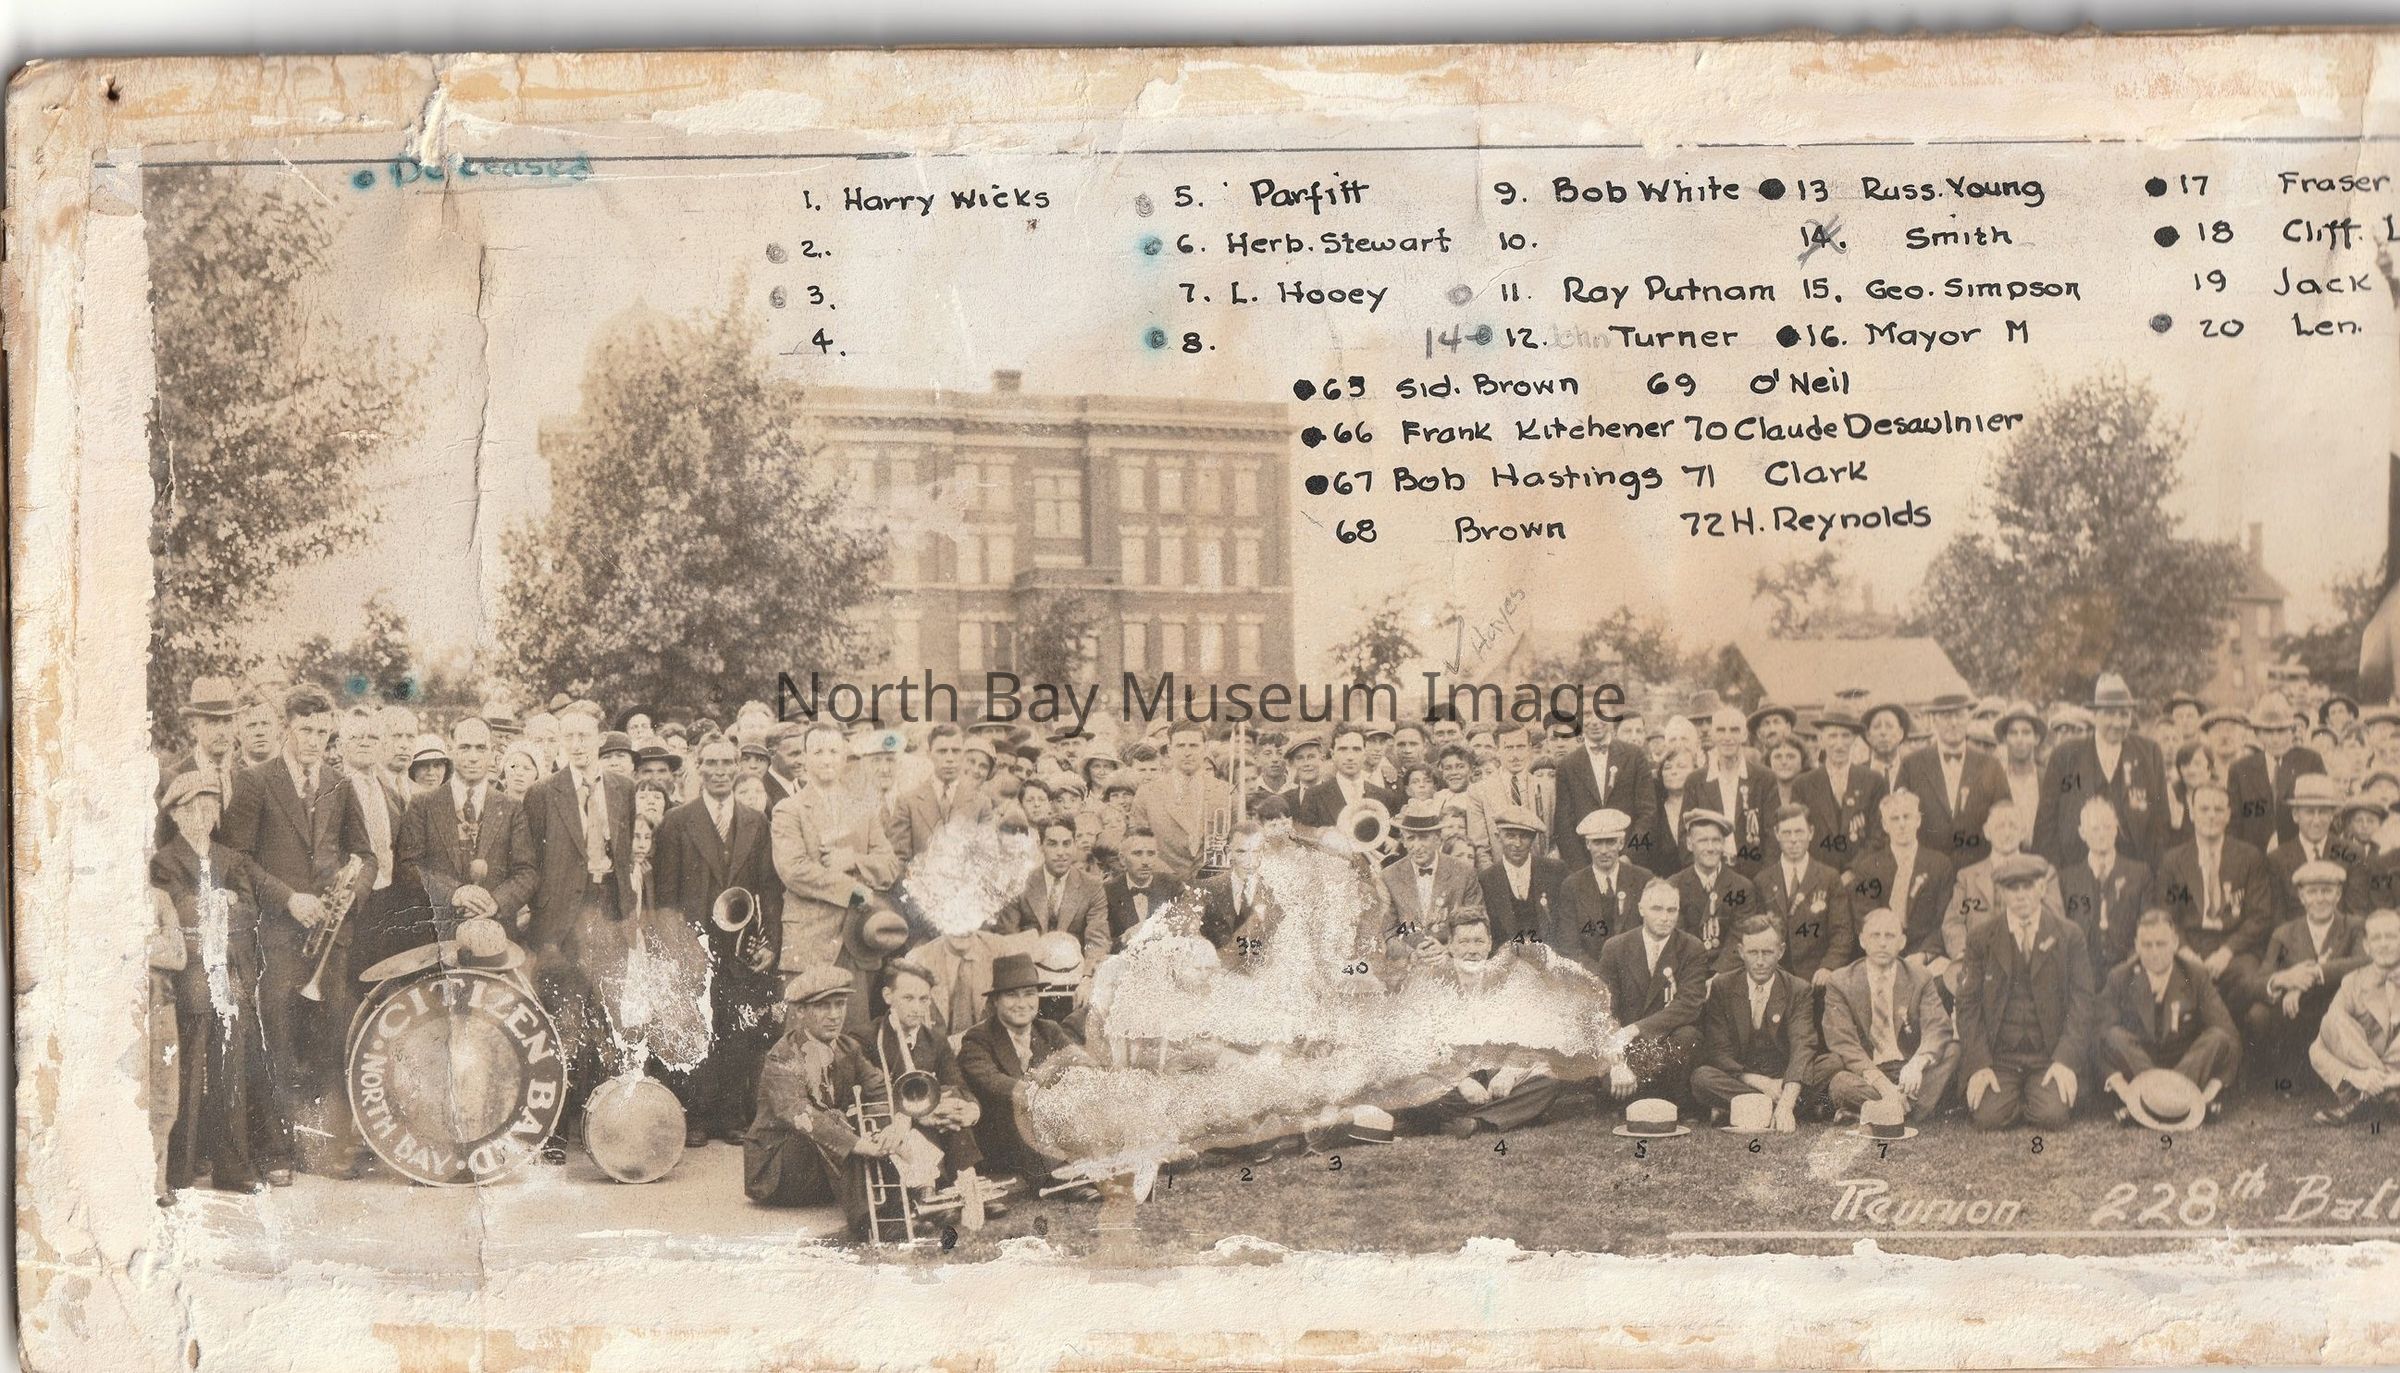 • Deceased
1. Harry Wicks
2.
3.
4.
5. Parfitt
6. Herb. Stewart
7. L. Hooey
8.
9. Bob White
10.
11. Ray Putnam
14 12. John Turner
13 Russ. Young
14. Smith
15. Geo. Simpson
16. Mayor M
17 Fraser
18 Cliff. L
19 Jack
20 Len.
65 Sid. Brown
66 Frank Kitchener
67 Bob Hastings
68 Brown
69 O'Neil
70 Claude Desaulnier
71 Clark
72 H. Reynolds
✓ Hayes
North Bay Museum Image
51
55
44 46 48 50 56
45 49 54 57
39 41 42 43 47 52 53
40
CITIZEN BAND
NORTH BAY
10
1 2 3 4 5 6 7 8 9 11
Reunion 228th Batt